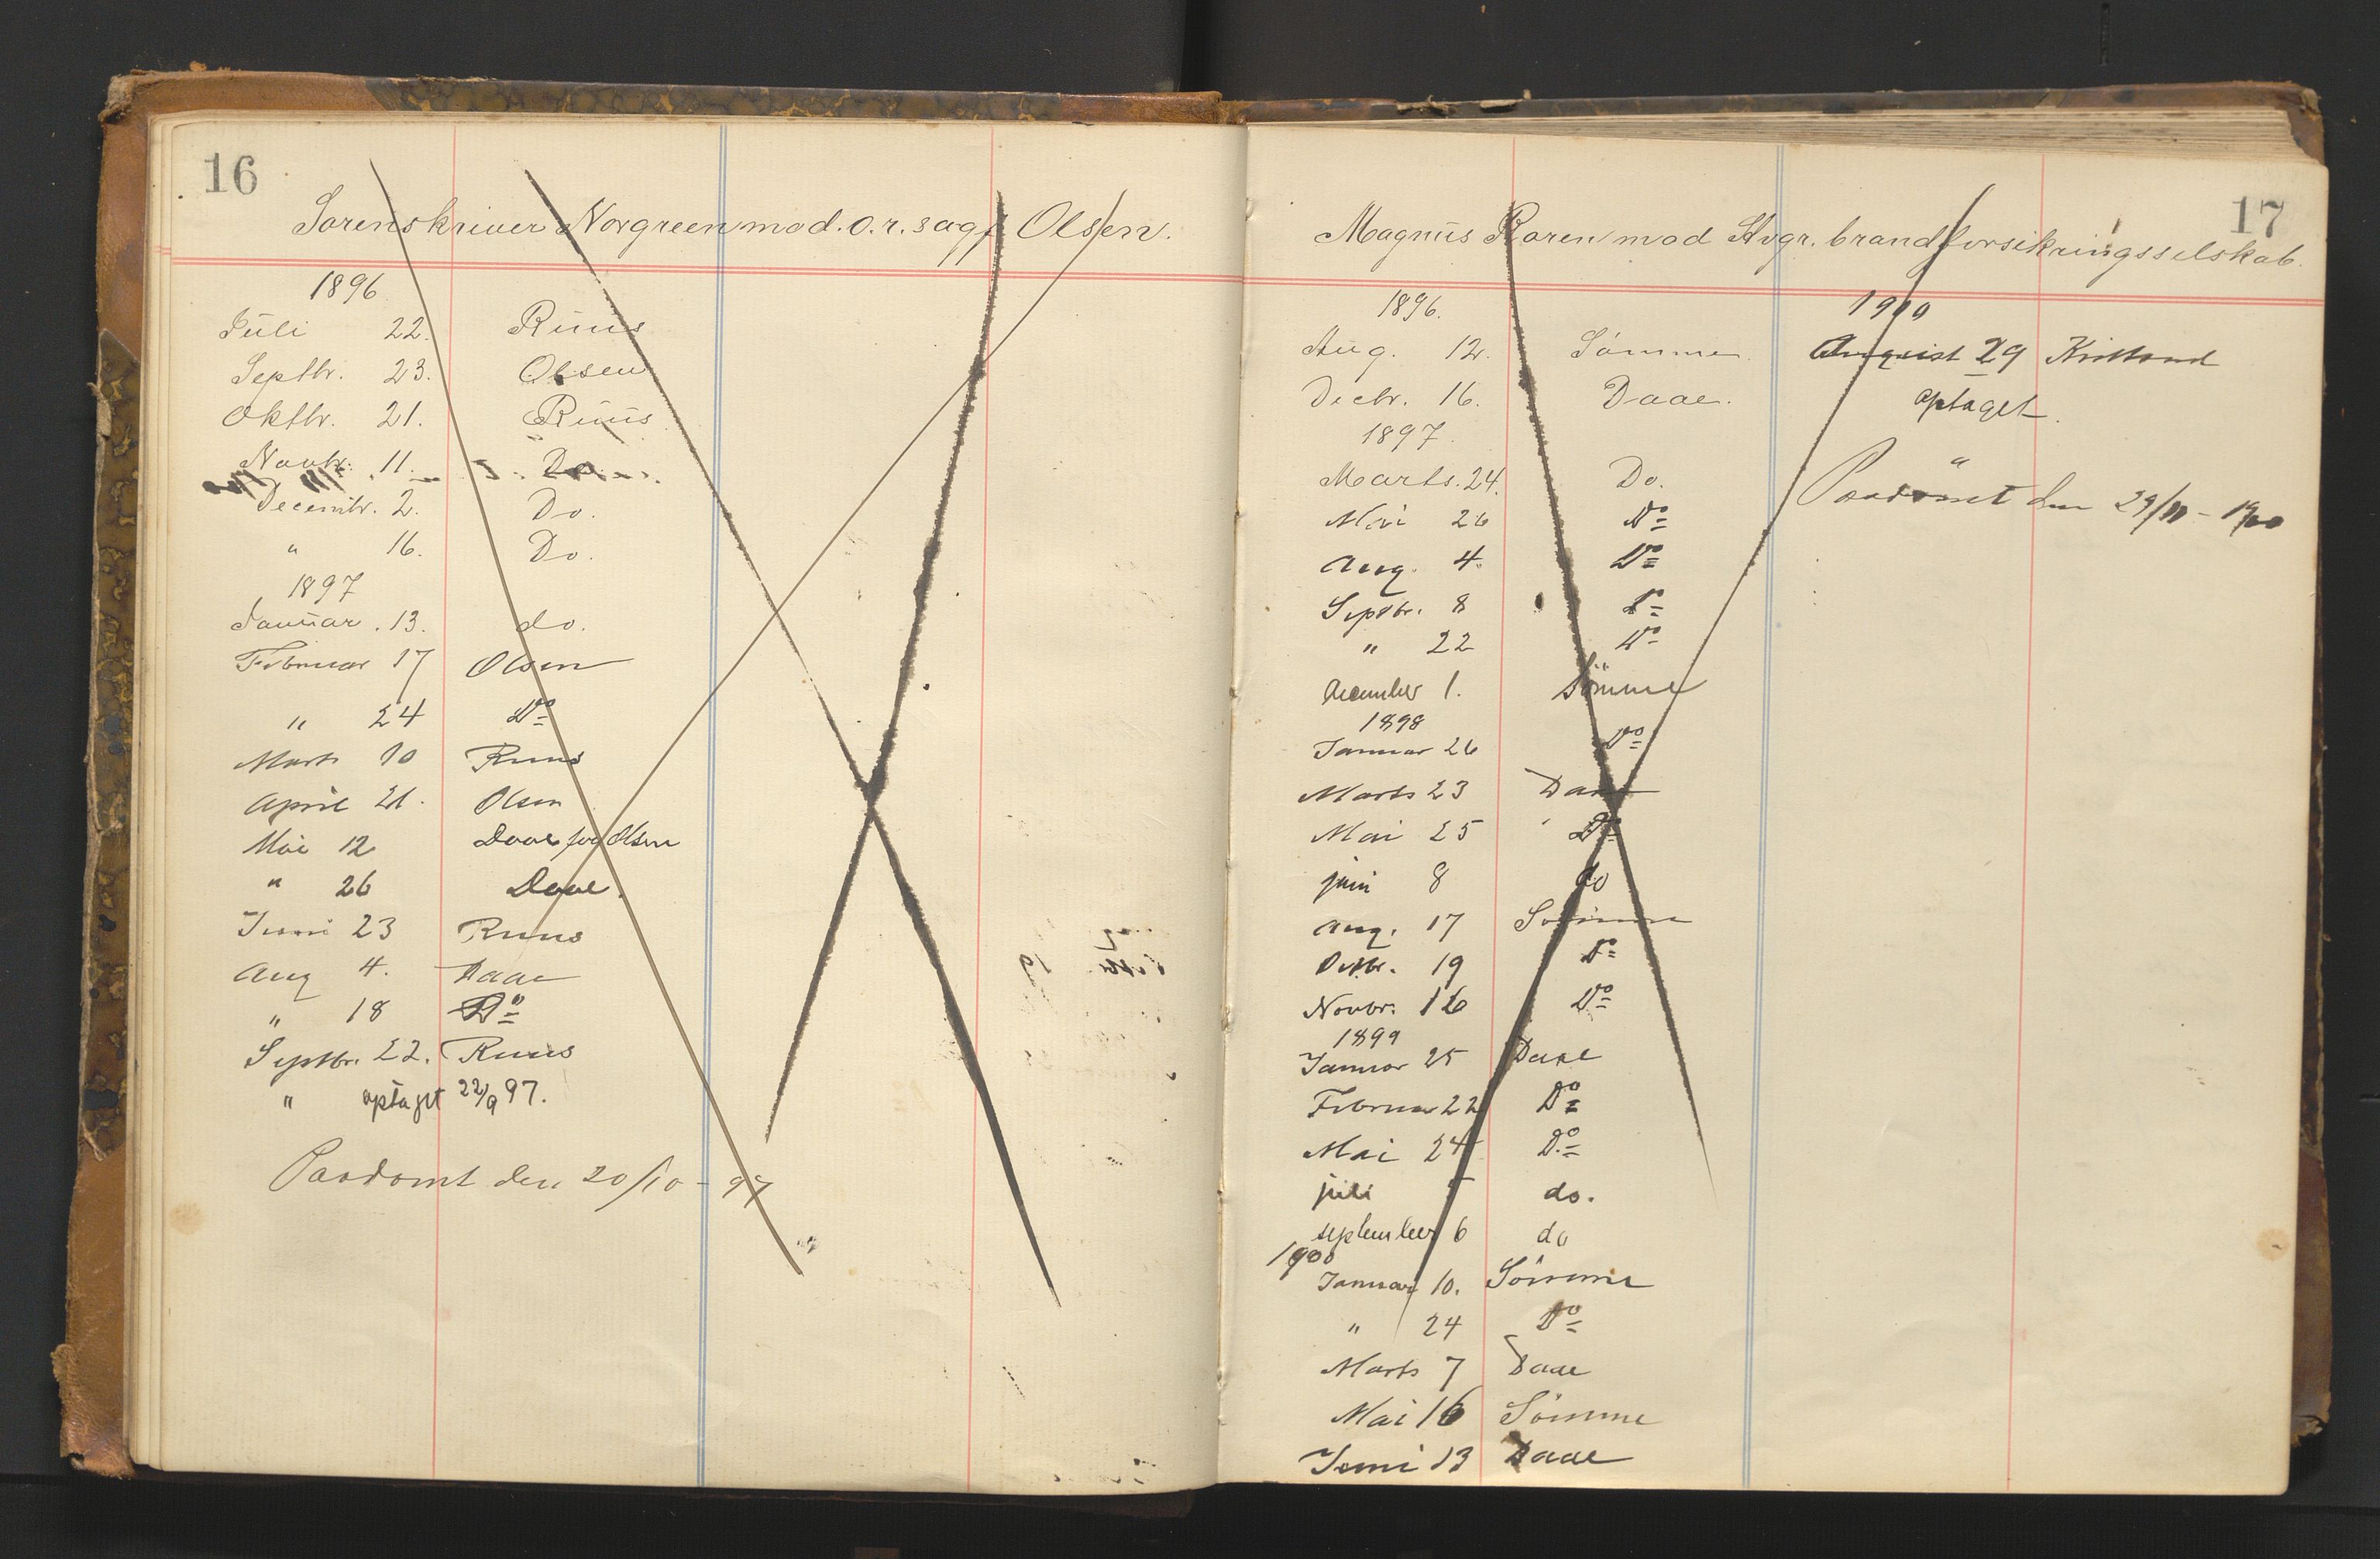 16
Sorenskriver Norgreen mod. o.r.sagf. Olsen.
1896.
Juli 22. Ruus
Septbr. 23. Olsen
Oktbr. 21. Ruus
Novbr. 11. Do.
Decembr. 2. Do.
" 16. Do.
1897
Januar. 13. do.
Februar 17 Olsen
" 24 Do
Marts 10 Ruus
April 21. Olsen
Mai 12 Daae for Olsen
" 26 Daae.
Juni 23 Ruus
Aug 4. Daae
" 18 Do
Septbr. 22. Ruus
" optaget 22/9 97.
Paadømt den 20/10 - 97
17
Magnus Raren mod Stvgr. brandforsikringsselskab.
1896.
Aug. 12. Sømme
Decbr. 16. Daae.
1897.
Marts. 24. Do.
Mai 26 Do
Aug. 4. Do
Septbr. 8 Do
" 22 Do
December 1. Sømme
1898
Januar 26 Do
Marts 23 Daae
Mai 25 Do
juni 8 do
Aug. 17 Sømme
Octbr. 19 Do
Novbr. 16 Do
1899
Januar 25 Daae
Februar 22 Do
Mai 24 Do
juli 5 do.
september 6 do
1900
Januar 10. Sømme
" 24 Do
Marts 7 Daae
Mai 16 Sømme
Juni 13 Daae
1900
August 29
optaget.
Paadømt den 29/11 - 1900